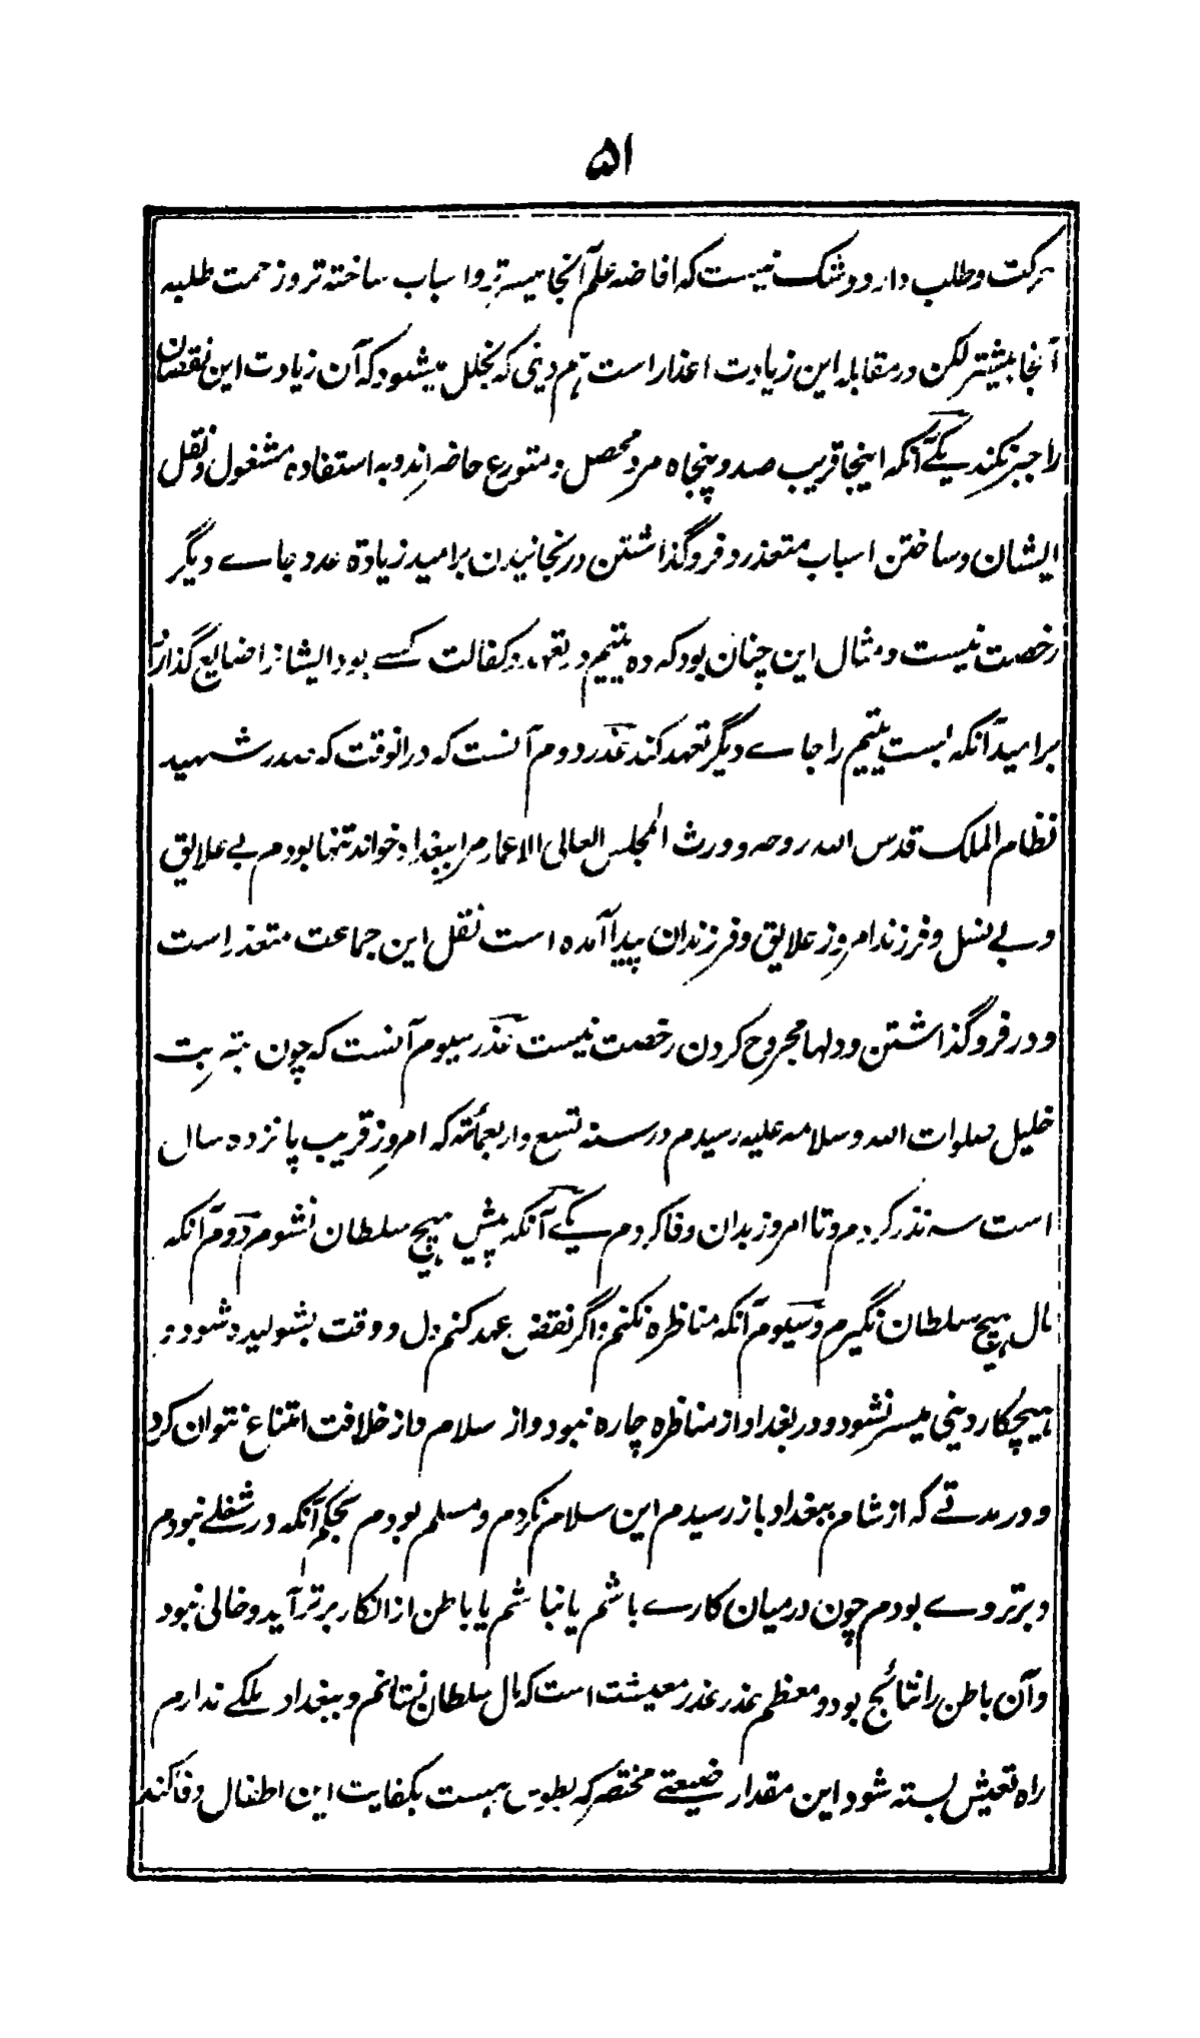 ۵۱
برکت و طلب دارد و شک نیست که افاضه علم آنجا میسر تر و اسباب ساخته تر و زحمت طلبه
آنجا بیشتر لکن در مقابله این زیادت اعذار است هم دینی که بخلل میشود که آن زیادت این نقصان
را جبر نکند یکے آنکه اینجا قریب صد و پنجاه مرد محصل و متورع حاضر اند و به استفاده مشغول و نقل
ایشان و ساختن اسباب متعذر و فروگذاشتن و رنجانیدن بر امید زیادة عدد جاے دیگر
رخصت نیست و مثال این چنان بود که ده یتیم در تعهد و کفالت کسے بود ایشانرا ضایع گذارد
بر امید آنکه بیست یتیم را جاے دیگر تعهد کند عذر دوم آنست که در آنوقت که صدر شهید
نظام الملک قدس الله روحه و ورث المجلس العالی الاعمار مرا ببغداد خواند تنها بودم بے علایق
و بے نسل و فرزند امروز علایق و فرزندان پیدا آمده است نقل این جماعت متعذر است
و در فروگذاشتن و دلها مجروح کردن رخصت نیست عذر سیوم آنست که چون بتربت
خلیل صلوات الله وسلامه علیه رسیدم در سنه تسع و اربعمائة که امروز قریب پانزده سال
است سه نذر کردم و تا امروز بدان وفا کردم یکے آنکه پیش هیچ سلطان نشوم دوم آنکه
مال هیچ سلطان نگیرم و سیوم آنکه مناظره نکنم و اگر نقض عهد کنم دل و وقت بشولیده شود و
هیچکار دینی میسر نشود و در بغداد از مناظره چاره نبود و از سلام دار خلافت امتناع نتوان کرد
و در مدتے که از شام ببغداد باز رسیدم این سلام نکردم و مسلم بودم بحکم آنکه در شغلے نبودم
و برتر وے بودم چون در میان کارے باشم یا نباشم یا باطن از انکار برتر آید و خالی نبود
و آن باطن را نتائج بود و معظم عذر عذر معیشت است که مال سلطان نستانم و ببغداد ملکے ندارم
راه تعیش بسته شود این مقدار ضیعتے مختصر که بطوس هست بکفایت این اطفال وفا کند